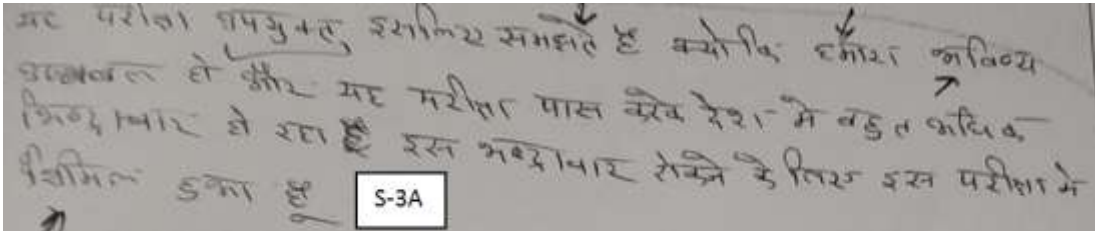 यह परीक्षा उपयुक्त, इसलिए समझते है क्योकि हमारा भविष्य
उज्जवल हो और यह परीक्षा पास करके देश मे बहुत अधिक
भ्रिष्टाचार हो रहा है इस भ्रष्टाचार रोकने के लिए इस परीक्षा मे
शामिल हुआ हूँ S-3A